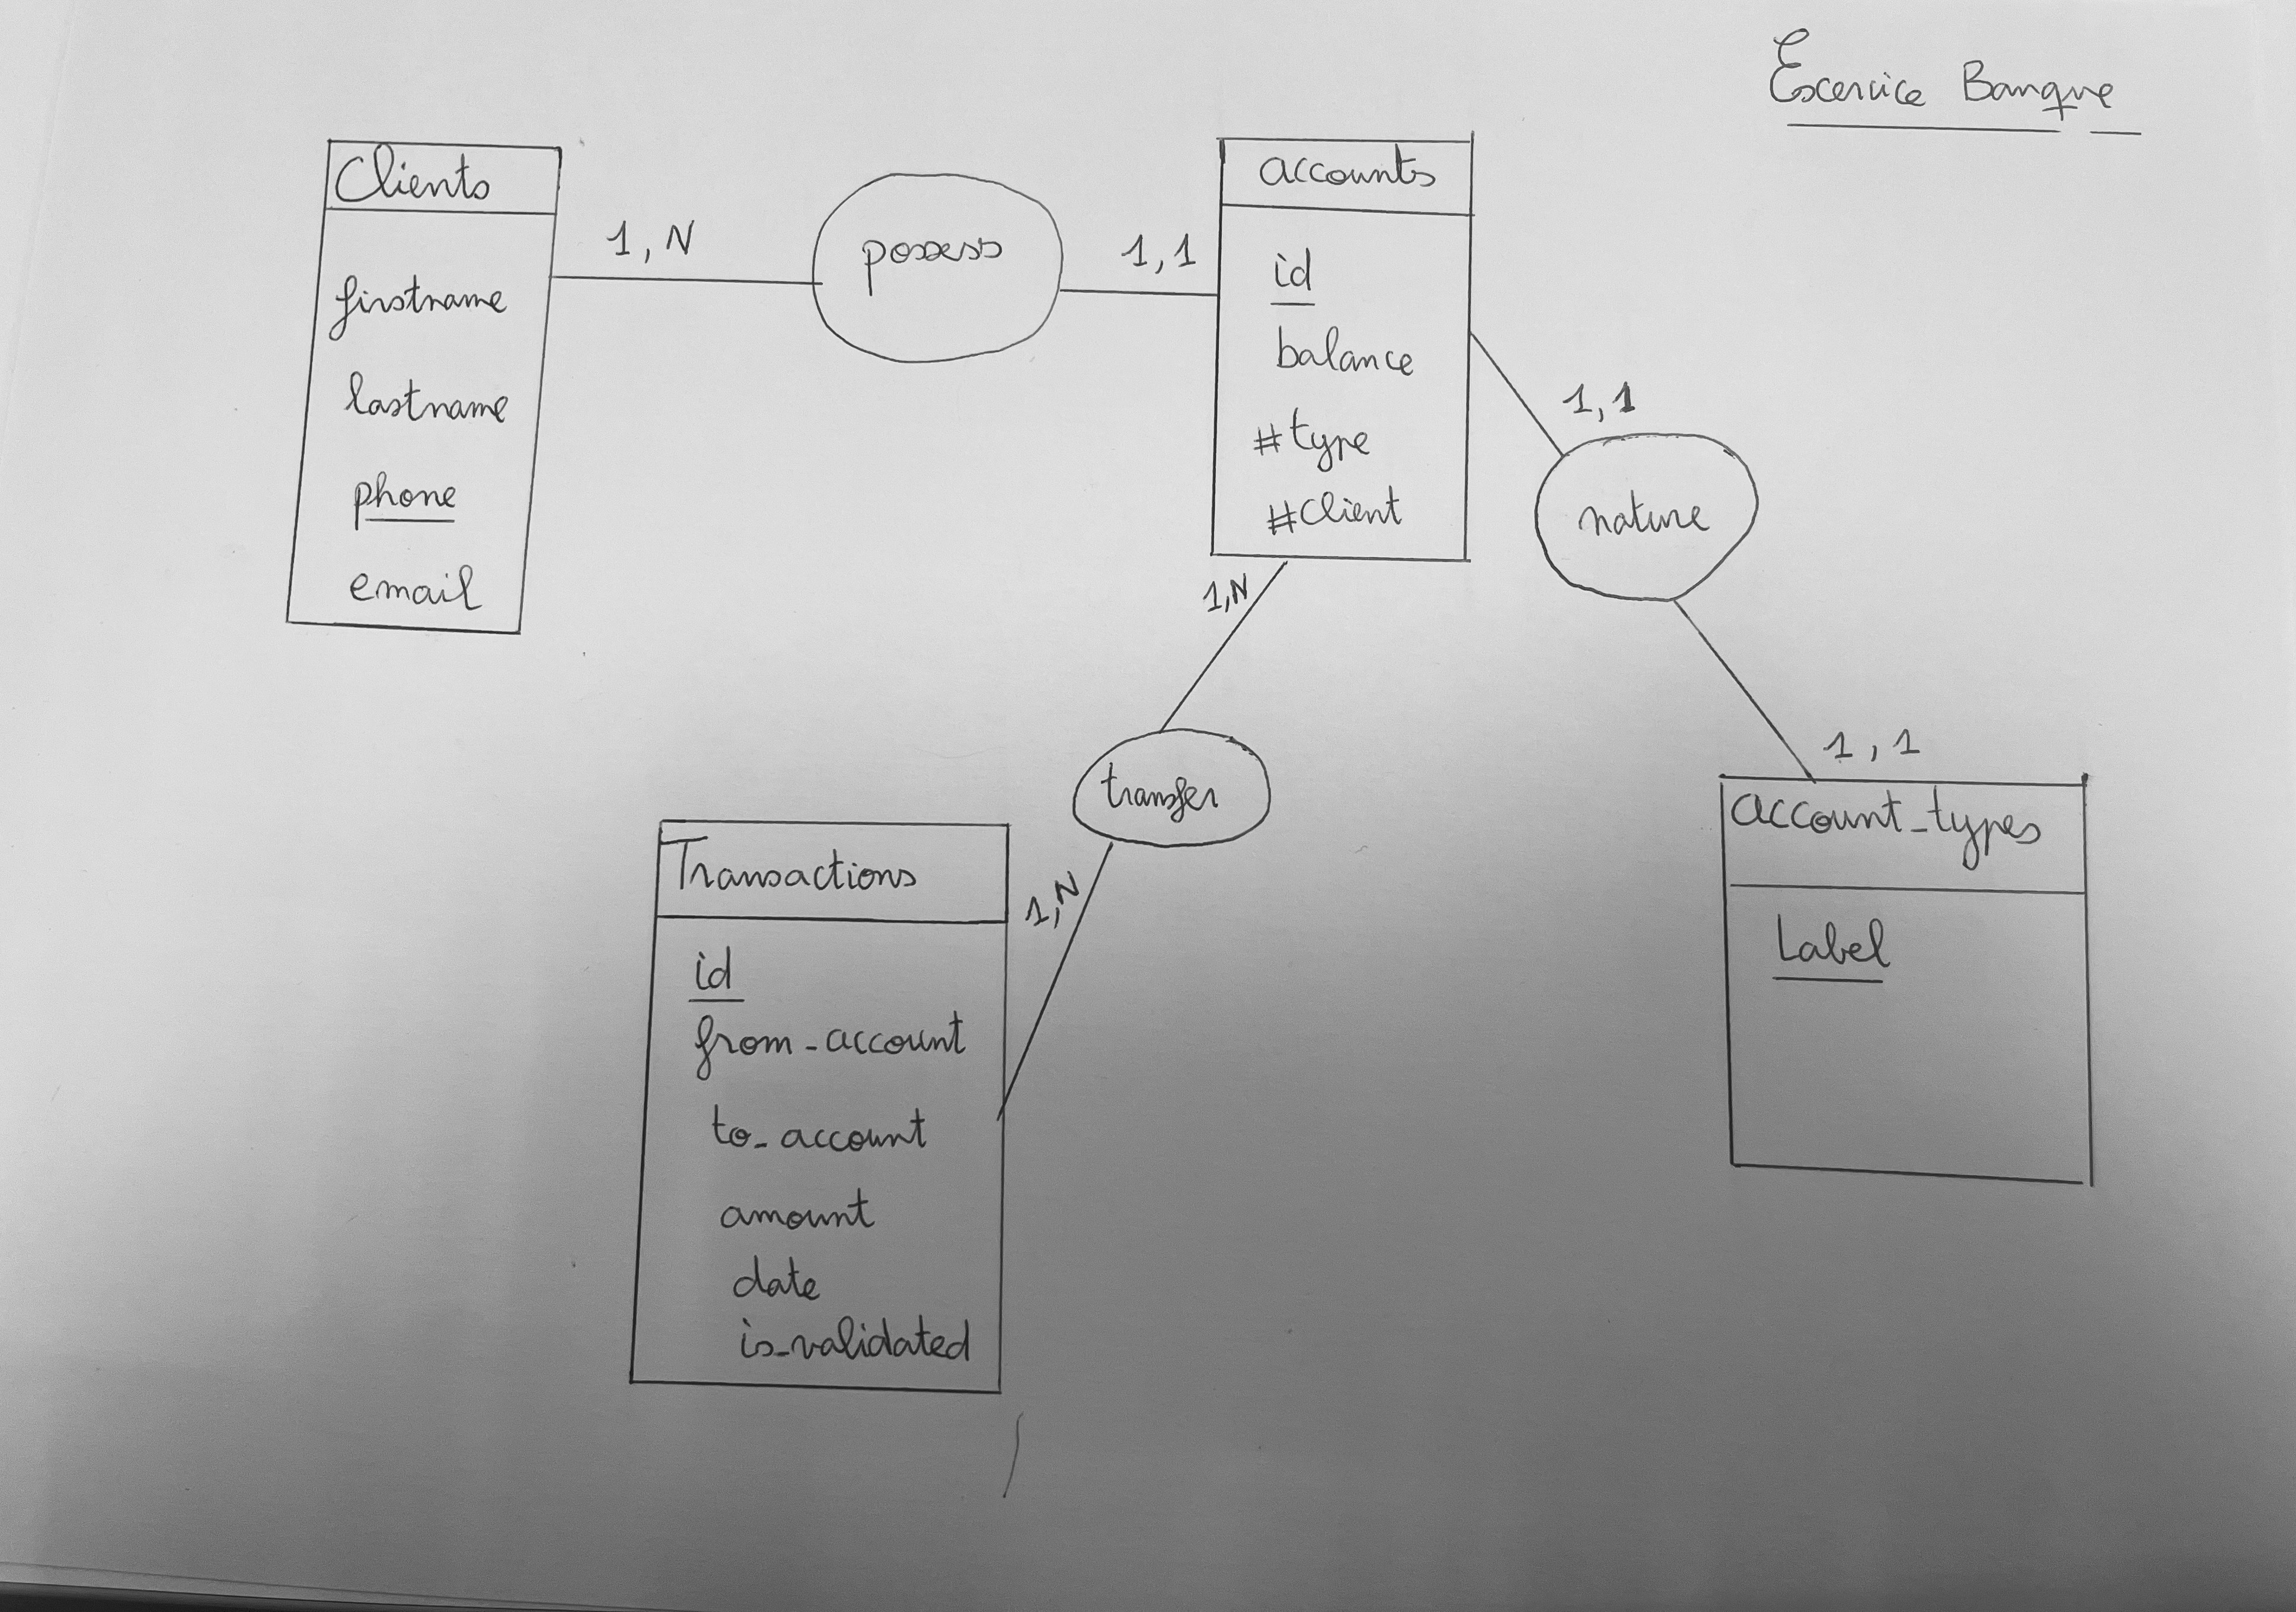 Excercice Banque
Clients
firstname
lastname
phone
email
1,N
possess
1,1
accounts
id
balance
#type
#client
1,1
nature
1,1
account_types
Label
1,N
transfer
1,N
Transactions
id
from_account
to_account
amount
date
is_validated